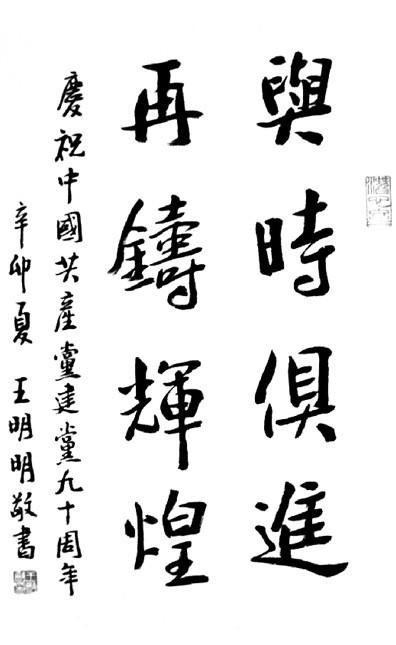 與時俱進
再鑄輝煌
慶祝中國共產黨建黨九十周年
辛卯夏 王明明敬書